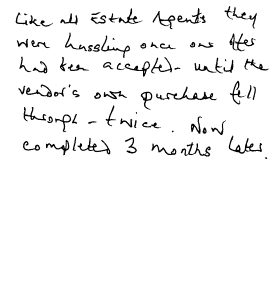 Like all Estate Agents they
were hassling once our offer
had been accepted - until the
vendor's own purchase fell
through - twice. Now
completed 3 months later.